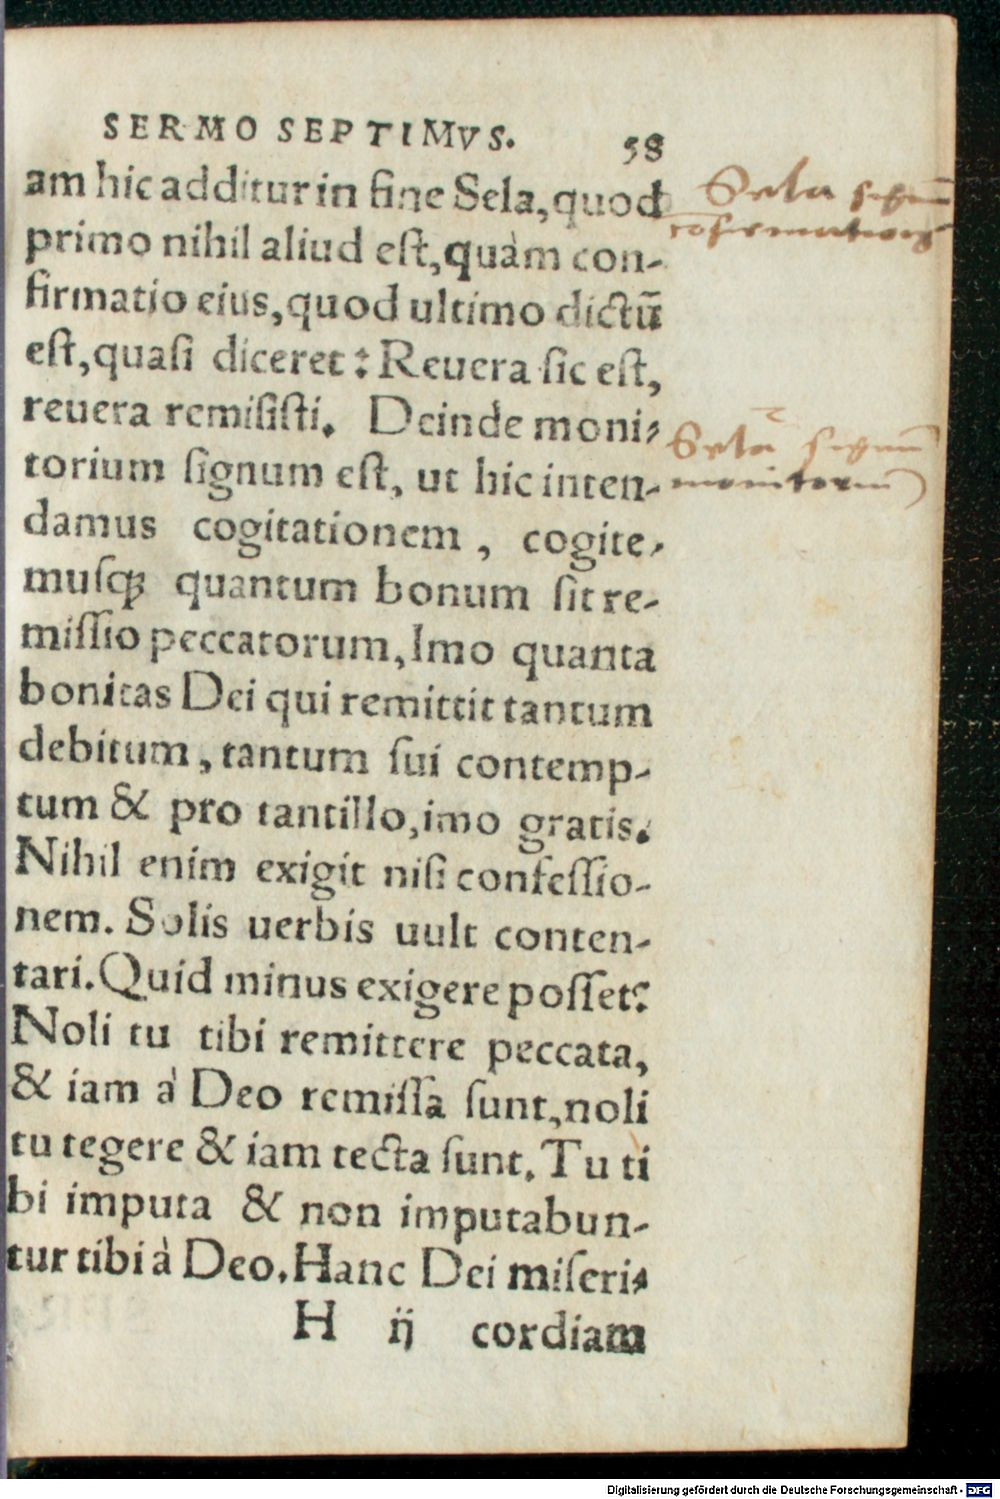 SERMO SEPTIMVS. 58
am hic additur in fine Sela, quod
primo nihil aliud est, quàm con-
firmatio eius, quod ultimo dictū
est, quasi diceret: Reuera sic est,
reuera remisisti. Deinde moni-
torium signum est, ut hic inten-
damus cogitationem, cogite-
musq; quantum bonum sit re-
missio peccatorum, Imo quanta
bonitas Dei qui remittit tantum
debitum, tantum sui contemp-
tum & pro tantillo, imo gratis.
Nihil enim exigit nisi confessio-
nem. Solis uerbis uult conten-
tari. Quid minus exigere posset?
Noli tu tibi remittere peccata,
& iam à Deo remissa sunt, noli
tu tegere & iam tecta sunt. Tu ti
bi imputa & non imputabun-
tur tibi à Deo. Hanc Dei miseri-
H ij cordiam
Sela signū
cōfirmationis
Sela signū
monitoriū
Digitalisierung gefördert durch die Deutsche Forschungsgemeinschaft - DFG